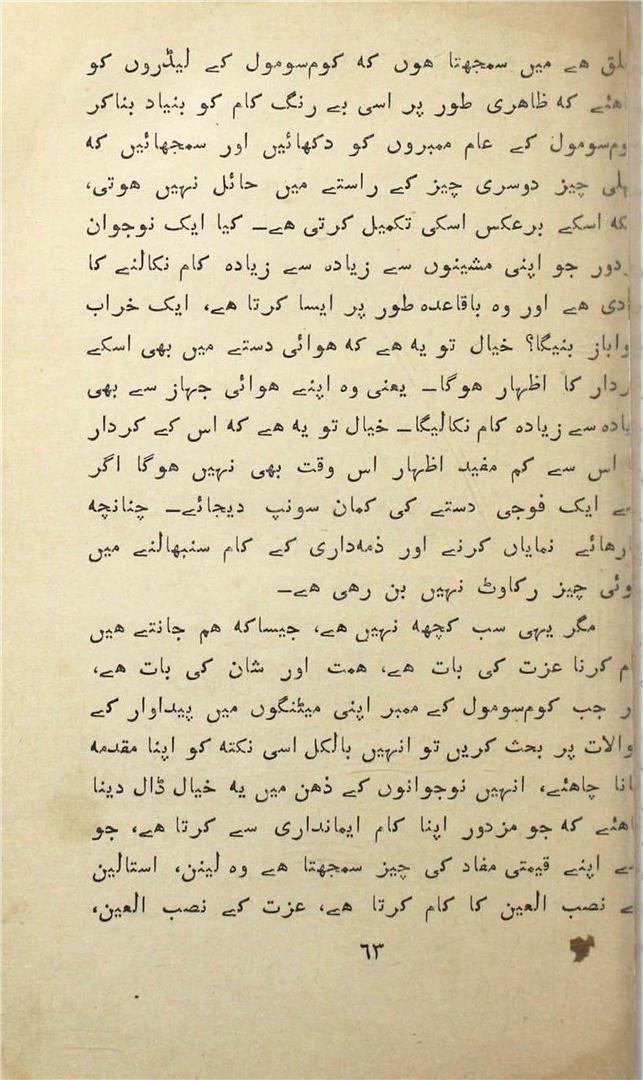 ہے میں سمجھتا ہوں کہ کوم‌سومول کے لیڈروں کو
کہ ظاہری طور پر اسی بے رنگ کام کو بنیاد بناکر
کے عام ممبروں کو دکھائیں اور سمجھائیں کہ
چیز دوسری چیز کے راستے میں حائل نہیں ہوتی،
اسکے برعکس اسکی تکمیل کرتی ہے۔ کیا ایک نوجوان
جو اپنی مشینوں سے زیادہ سے زیادہ کام نکالنے کا
ہے اور وہ باقاعدہ طور پر ایسا کرتا ہے، ایک خراب
بنیگا؟ خیال تو یہ ہے کہ ہوائی دستے میں بھی اسکے
کا اظہار ہوگا۔ یعنی وہ اپنے ہوائی جہاز سے بھی
سے زیادہ کام نکالیگا۔ خیال تو یہ ہے کہ اس کے کردار
اس سے کم مفید اظہار اس وقت بھی نہیں ہوگا اگر
ایک فوجی دستے کی کمان سونپ دیجائے۔ چنانچہ
نمایاں کرنے اور ذمہ‌داری کے کام سنبھالنے میں
چیز رکاوٹ نہیں بن رہی ہے۔
مگر یہی سب کچھہ نہیں ہے، جیساکہ ہم جانتے ہیں
کرنا عزت کی بات ہے، ہمت اور شان کی بات ہے،
جب کوم‌سومول کے ممبر اپنی میٹنگوں میں پیداوار کے
پر بحث کریں تو انہیں بالکل اسی نکتہ کو اپنا مقدمہ
چاہئے، انہیں نوجوانوں کے ذہن میں یہ خیال ڈال دینا
کہ جو مزدور اپنا کام ایمانداری سے کرتا ہے، جو
اپنے قیمتی مفاد کی چیز سمجھتا ہے وہ لینن، استالین
نصب العین کا کام کرتا ہے، عزت کے نصب العین،
۶۳